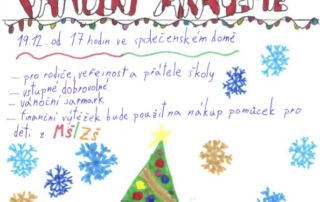 VÁNOČNÍ
19.12. od 17 hodin ve společenském domě
– pro rodiče, veřejnost a přátele školy
– vstupné dobrovolné
– vánoční jarmark
– finanční výtěžek bude použit na nákup pomůcek pro
děti z MŠ/ZŠ